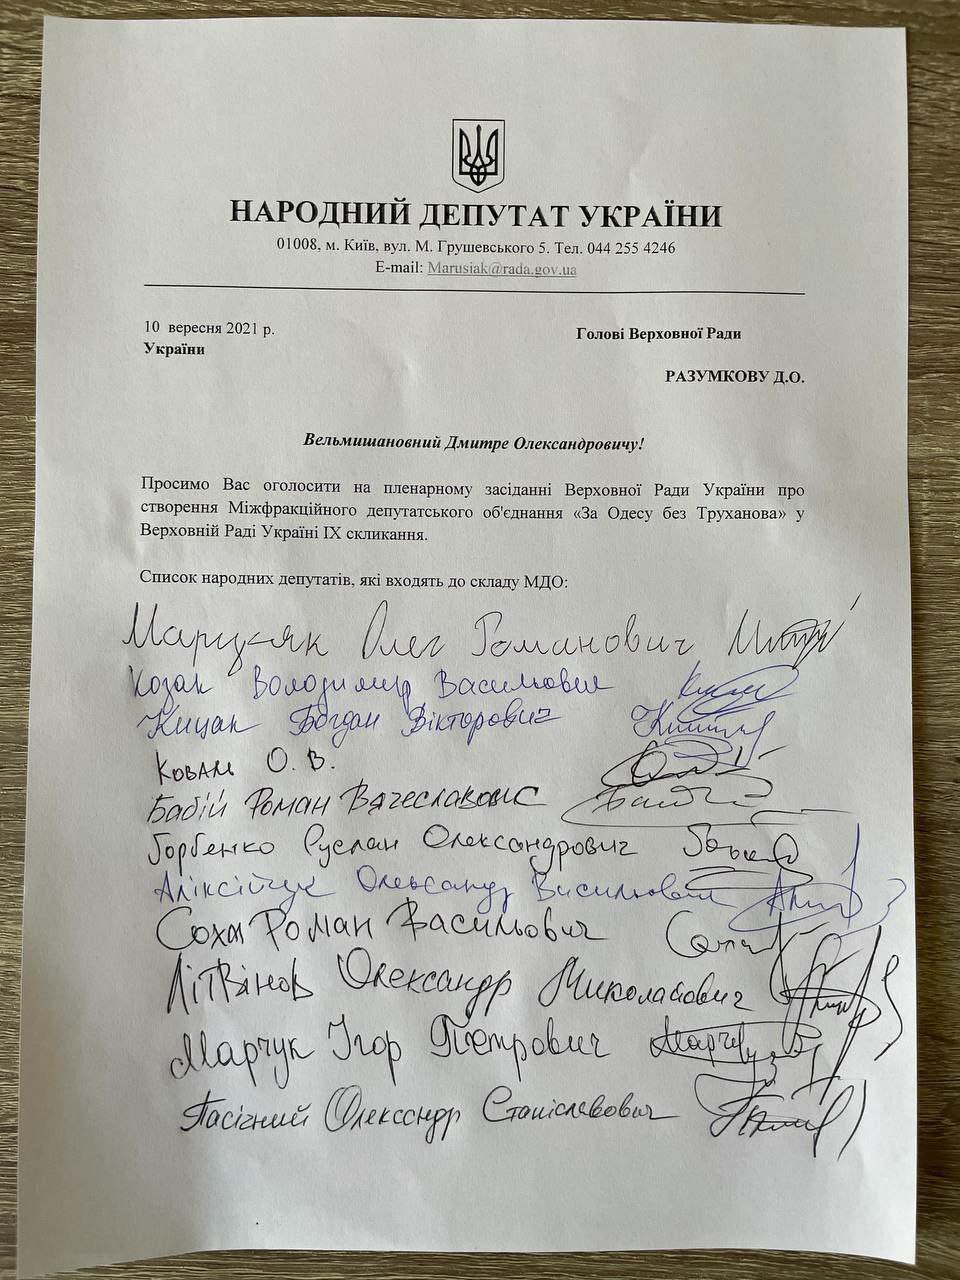 НАРОДНИЙ ДЕПУТАТ УКРАЇНИ
01008, м. Київ, вул. М. Грушевського 5. Тел. 044 255 4246
E-mail: Marusiak@rada.gov.ua
10 вересня 2021 р.
України
Голові Верховної Ради
РАЗУМКОВУ Д.О.
Вельмишановний Дмитре Олександровичу!
Просимо Вас оголосити на пленарному засіданні Верховної Ради України про
створення Міжфракційного депутатського об'єднання «За Одесу без Труханова» у
Верховній Раді Україні IX скликання.
Список народних депутатів, які входять до складу МДО:
Марусяк Олег Романович
Козак Володимир Васильович
Кицак Богдан Вікторович
О. В.
Бабій Роман Вячеславович
Горбенко Руслан Олександрович
Аліксійчук Олександр Васильович
Соха Роман Васильович
Літвінов Олександр Миколайович
Марчук Ігор Петрович
Пасічний Олександр Станіславович